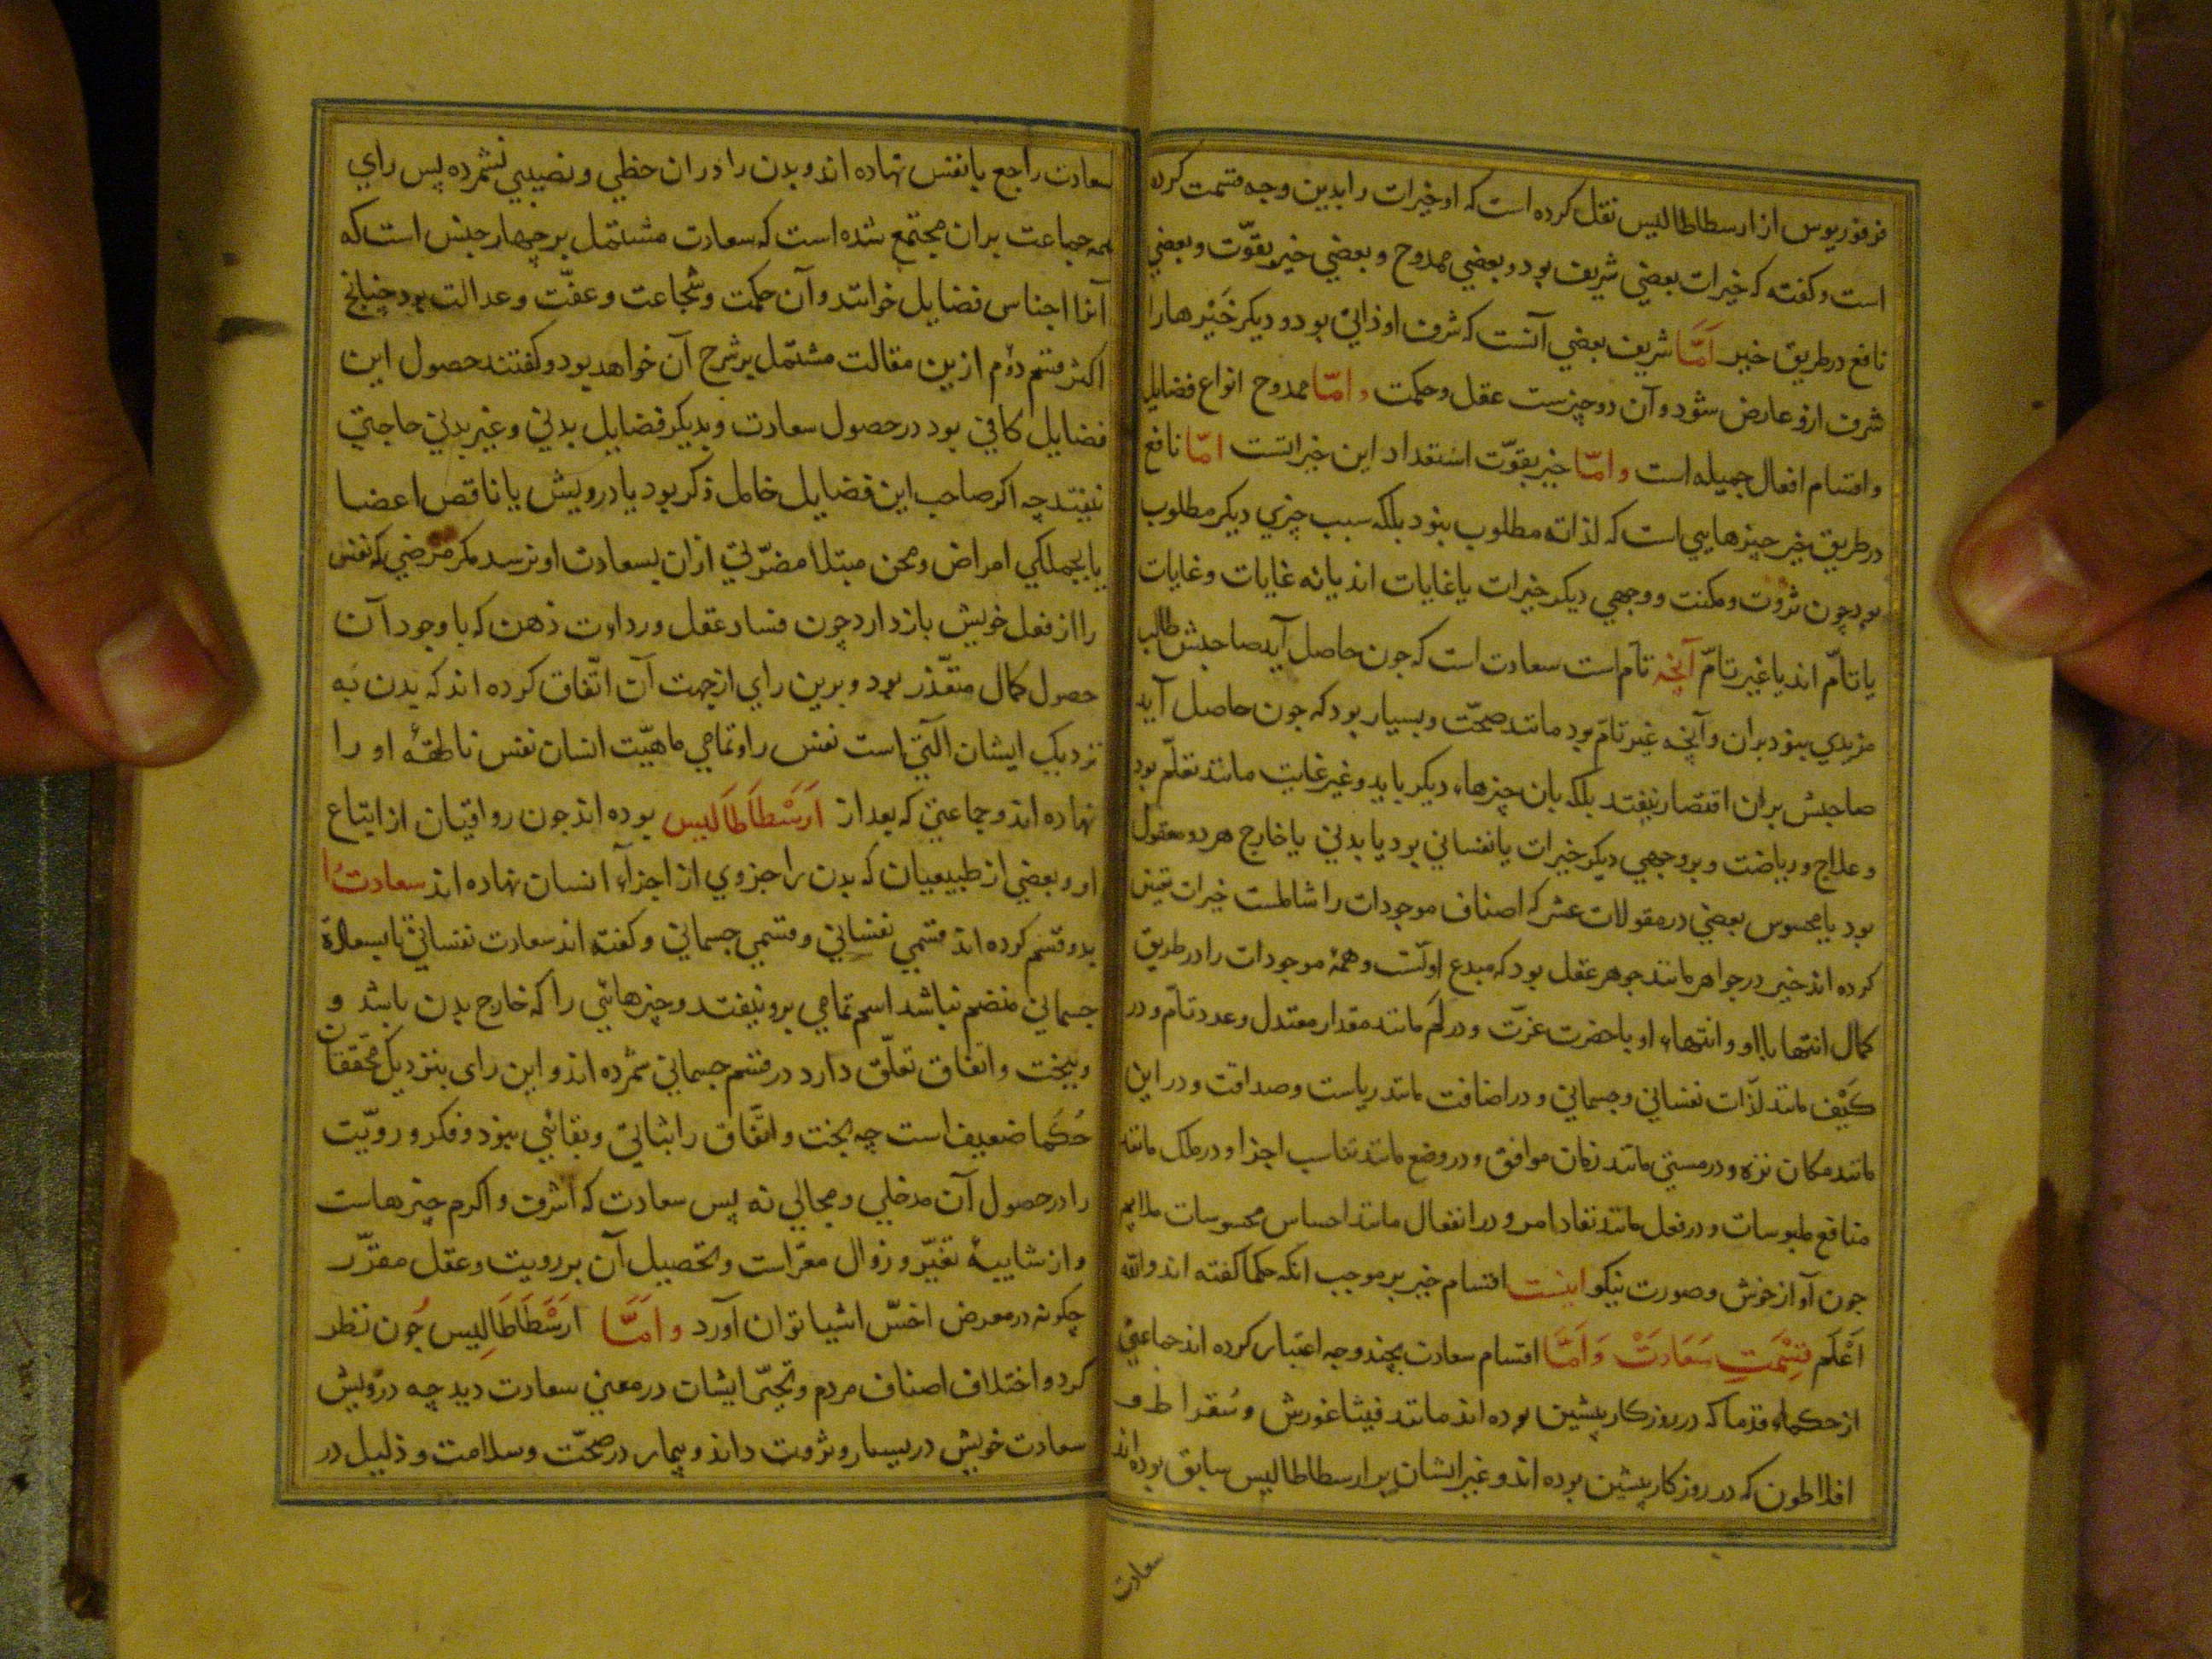 فرفوریوس از ارسطاطالیس نقل کرده است که او خیرات را بدین وجه قسمت کرده
است و کفته که خیرات بعضي شریف بود و بعضي ممدوح و بعضي خیر بقوّت و بعضي
نافع در طریق خیر اَمَّا شریف بعضي آنست که شرف او ذاتي بود و دیکر خَیْرها را
شرف ازو عارض شود و آن دو چیزست عقل و حکمت و امّا ممدوح انواع فضایل
و اقسام افعال جمیله است و امّا خیر بقوّت استعداد این خیراتست امّا نافع
در طریق خیر چیزهایي است که لذاته مطلوب بنود بلکه سبب چیزي دیکر مطلوب
بود چون ثروت و مکنت و وجهي دیکر خیرات یا غایات اند یا نه غایات و غایات
یا تامّ اند یا غیر تامّ آنچه تام است سعادت است که جون حاصل آید صاحبش طالب
مزیدي بنود بران و آنچه غیر تامّ بود مانند صحّت و بسیار بود که جون حاصل آید
صاحبش بران اقتصار نیفتد بلکه بان چیزهاء دیکر باید و غیر غایت مانند تعلّم بود
و علاج و ریاضت و بروجهي دیکر خیرات یا نفساني بود یا بدني یا خارج هر دو معقول
بود یا محسوس بعضي در مقولات عشر که اصناف موجودات را شاملست خیرات تعیین
کرده اند خیر در جواهر مانند جوهر عقل بود که مبدع اولّست و همهٔ موجودات را در طریق
کمال انتها با او و انتهاء او با حضرت عزّت و در کَم مانند مقدار معتدل و عدد تامّ و در
کَیْف مانند لذّات نفساني و جسماني و در اضافت مانند ریاست و صداقت و در این
مانند مکان نزه و در متي مانند زمان موافق و در وضع مانند تناسب اجزا و در ملک مانند
منافع ملبوسات و در فعل مانند نفاد امر و در انفعال مانند احساس محسوسات ملایم
جون آواز خوش و صورت نیکو اینست اقسام خیر بر موجب انکه حکما کفته اند و الله
اَعْلَم قِسْمَتِ سَعَادَتْ وَ اَمَّا اقسام سعادت بچند وجه اعتبار کرده اند جماعتي
از حکماء قدما که در روزکار پیشین بوده اند مانند فیثاغورش و سُقراط و
افلاطون که در روزکار پیشین بوده اند و غیر ایشان بر ارسطاطالیس سابق بوده اند
سعادت
سعادت راجع با نفس نهاده اند و بدن را در ان حظي و نصیبي نشمرده پس راي
همه جماعت بران مجتمع شده است که سعادت مشتمل بر چهار جنس است که
آنرا اجناس فضایل خوانند و آن حکمت و شجاعت و عفّت و عدالت بود چنانچ
اکثر قسم دوٌم ازین مقالت مشتمل بر شرح آن خواهد بود و کفتند حصول این
فضایل کافي بود در حصول سعادت و بدیکر فضایل بدني و غیر بدني حاجتي
نیفتد چه اکر صاحب این فضایل خامل ذکر بود یا درویش یا ناقص اعضا
یا بجملکي امراض و محن مبتلا مضرّتي ازان بسعادت او نرسد مکر مرضي که نفس
را از فعل خویش باز دارد چون فساد عقل و رداءت ذهن که با وجود آن
حصول کمال متعّذر بود و برین راي ازجهت آن اتّفاق کرده اند که بدن به
نزدیک ایشان آلتي است نفس را و تمامي ماهیّت انسان نفس ناطقهٔ او را
نهاده اند و جماعتي که بعد از اَرَسْطَاطَالیس بوده اند جون رواقیان از اتباع
او و بعضي از طبیعیان که بدن را جزوي از اجزآء انسان نهاده اند سعادت را
بدو قسم کرده اند قسمي نفساني و قسمي جسماني و کفته اند سعادت نفساني تا بسعادة
جسماني منضم نباشد اسم تمامي برو نیفتد و چیزهائي را که خارج بدن باشد و
ببخت و اتفاق تعلّق دارد در قسم جسماني شمرده اند و این رای بنزدیک محّققان
حُکَما ضعیف است چه بخت و اتّفاق را ثباتي و بقائي بنود و فکر و رویّت
را در حصول آن مدخلي و مجالي نه پس سعادت که اشرف و اکرم چیزهاست
و از شایبهٔ تغیّر و زوال معّراست و تحصیل آن بر رویت و عقل مقدّر
چکونه در معرض اخسّ اشیا توان آورد و اَمَّا اَرَسْطَاطَالِیس جُون نظر
کرد و اختلاف اصناف مردم و تحیّر ایشان در معني سعادت دید چه درویش
سعادت خویش در یسار و ثروت داند و بیمار در صحّت و سلامت و ذلیل در